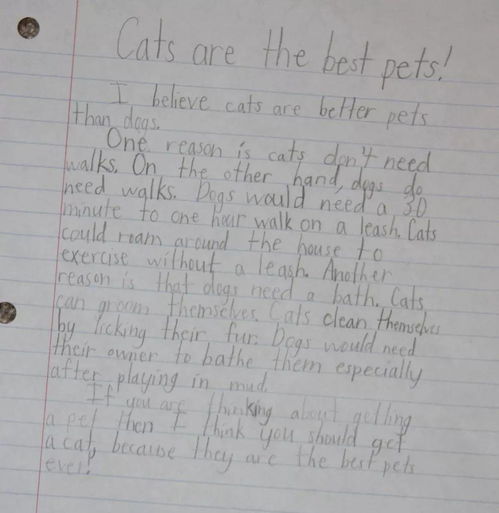 Cats are the best pets!
I believe cats are better pets
than dogs.
One reason is cats don't need
walks. On the other hand, dogs do
need walks. Dogs would need a 30
minute to one hour walk on a leash. Cats
could roam around the house to
exercise without a leash. Another
reason is that dogs need a bath. Cats
can groom themselves. Cats clean themselves
by licking their fur. Dogs would need
their owner to bathe them especially
after playing in mud.
If you are thinking about getting
a pet then I think you should get
a cat, because they are the best pets
ever!